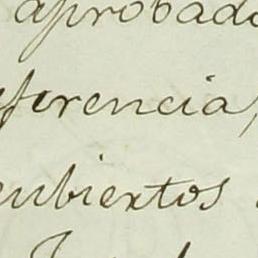 aprobado
ferencia,
cubiertos